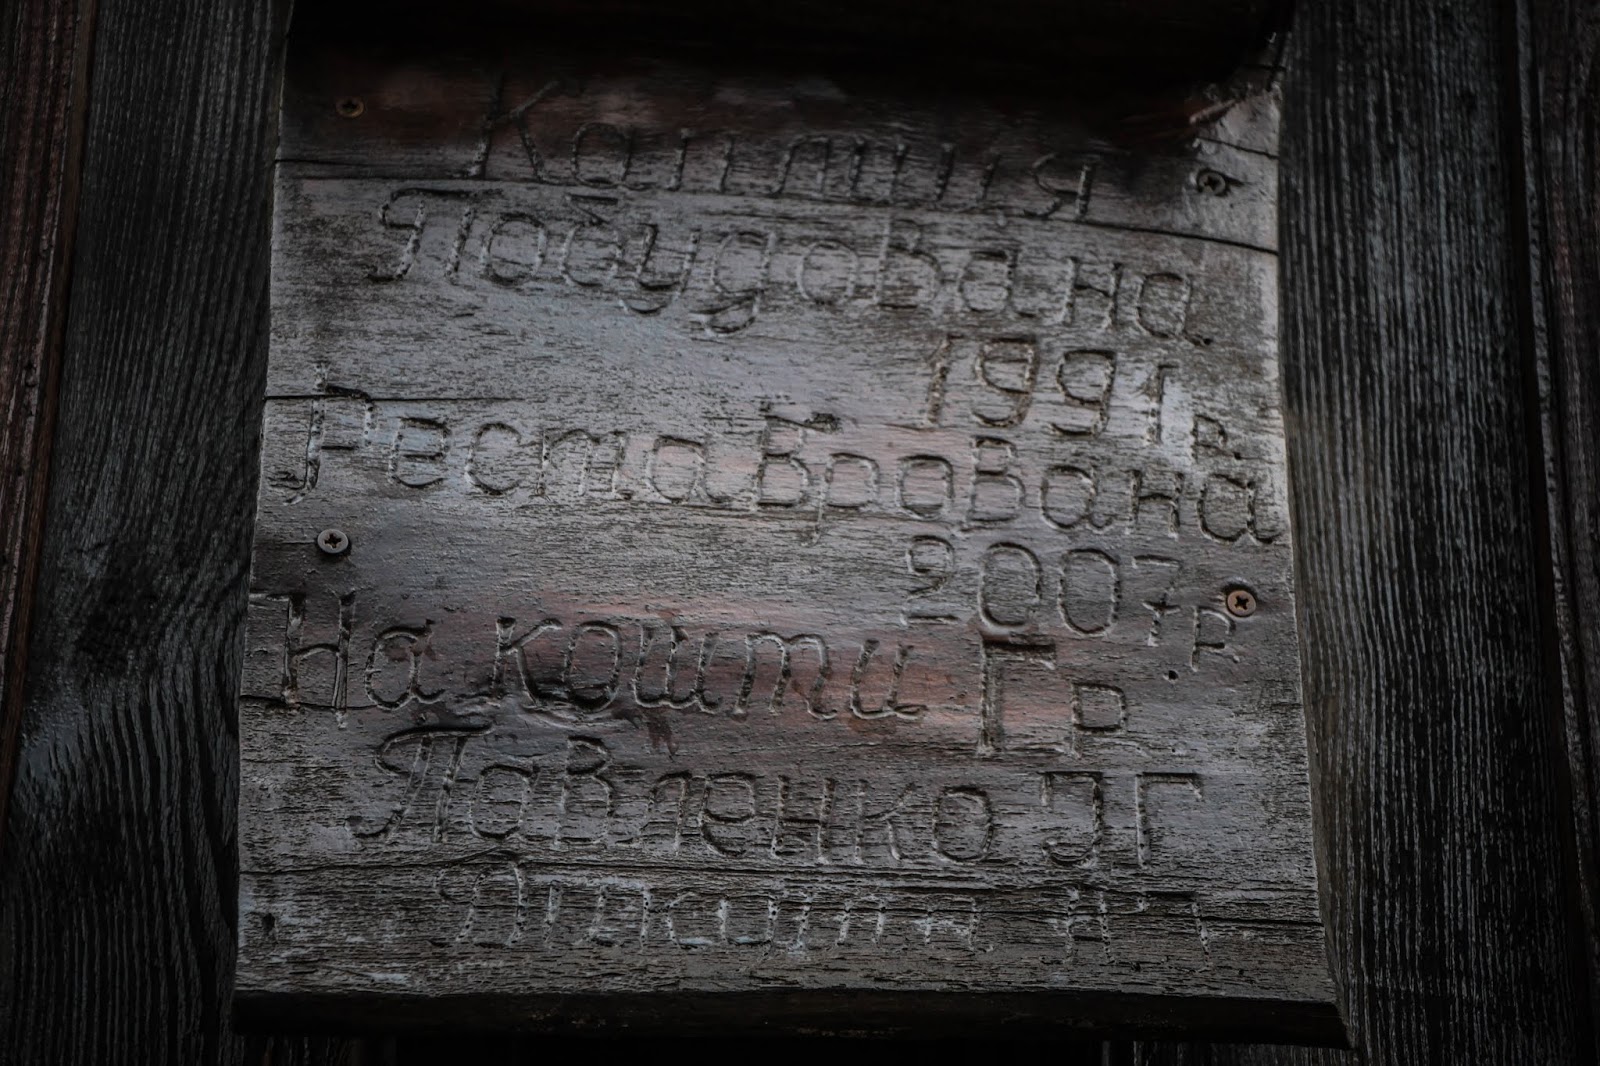 Каплиця
Побудована
1991 р.
Реставрована
2007 р
На кошти Гр.
Павленко І Г